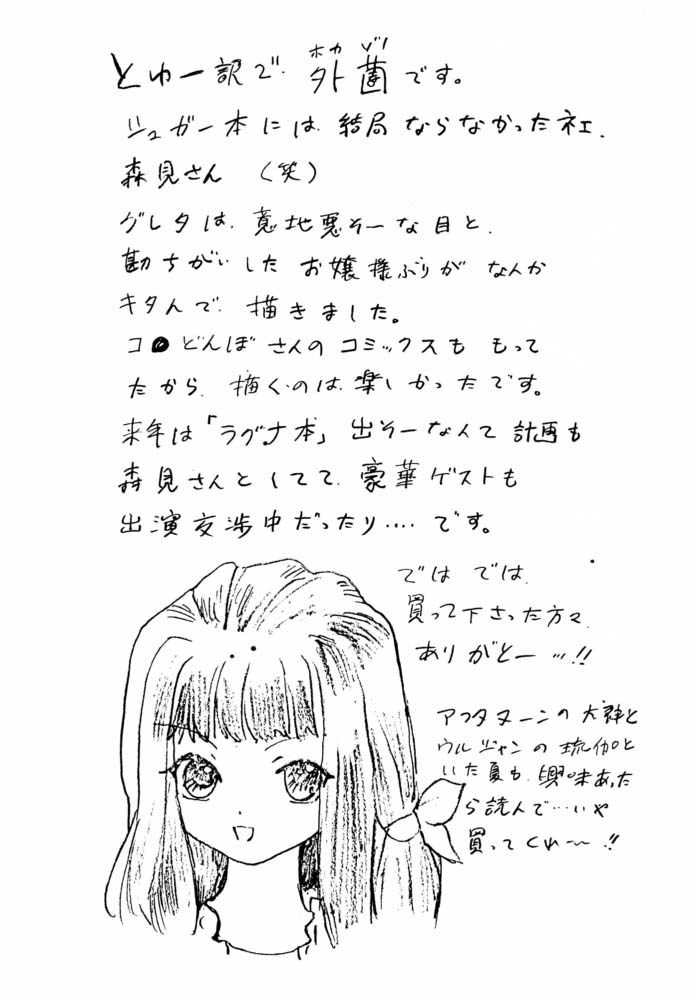 とゆー訳で、外薗です。
ホカ ゾノ
シュガー本には、結局ならなかったネェ、
森見さん (笑)
グレタは、意地悪そーな目と、
勘ちがいした お嬢様ぶりが なんか
キタんで、描きました。
コ●どんぼさんのコミックスも もって
たから、描くのは、楽しかったです。
来年は「ラグナ本」出そーなんて 計画も
森見さんとしてて、豪華ゲストも
出演交渉中だったり‥‥です。
ではでは、
買って下さった方々、
ありがとー…!!
アフタヌーンの犬神と
ウルジャンの琉伽と
いた夏も、興味あった
ら読んで‥‥いや
買ってくれ〜!!